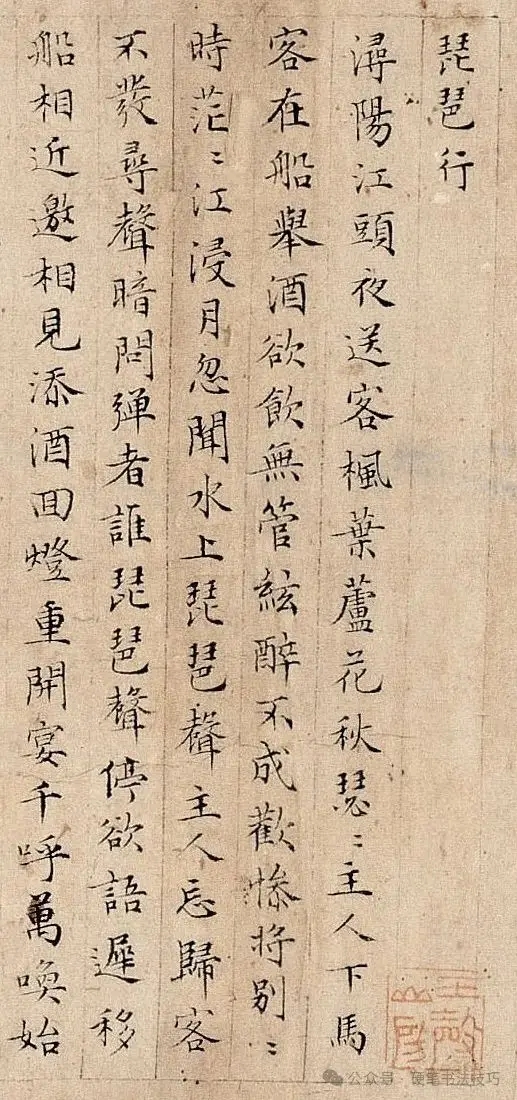 琵琶行
潯陽江頭夜送客楓葉蘆花秋瑟〻主人下馬
客在船舉酒欲飲無管絃醉不成歡慘将别〻
時茫〻江浸月忽聞水上琵琶聲主人忘歸客
不發尋聲暗問弹者誰琵琶聲停欲語遲移
船相近邀相見添酒回燈重開宴千呼萬喚始
公众号·硬笔书法技巧